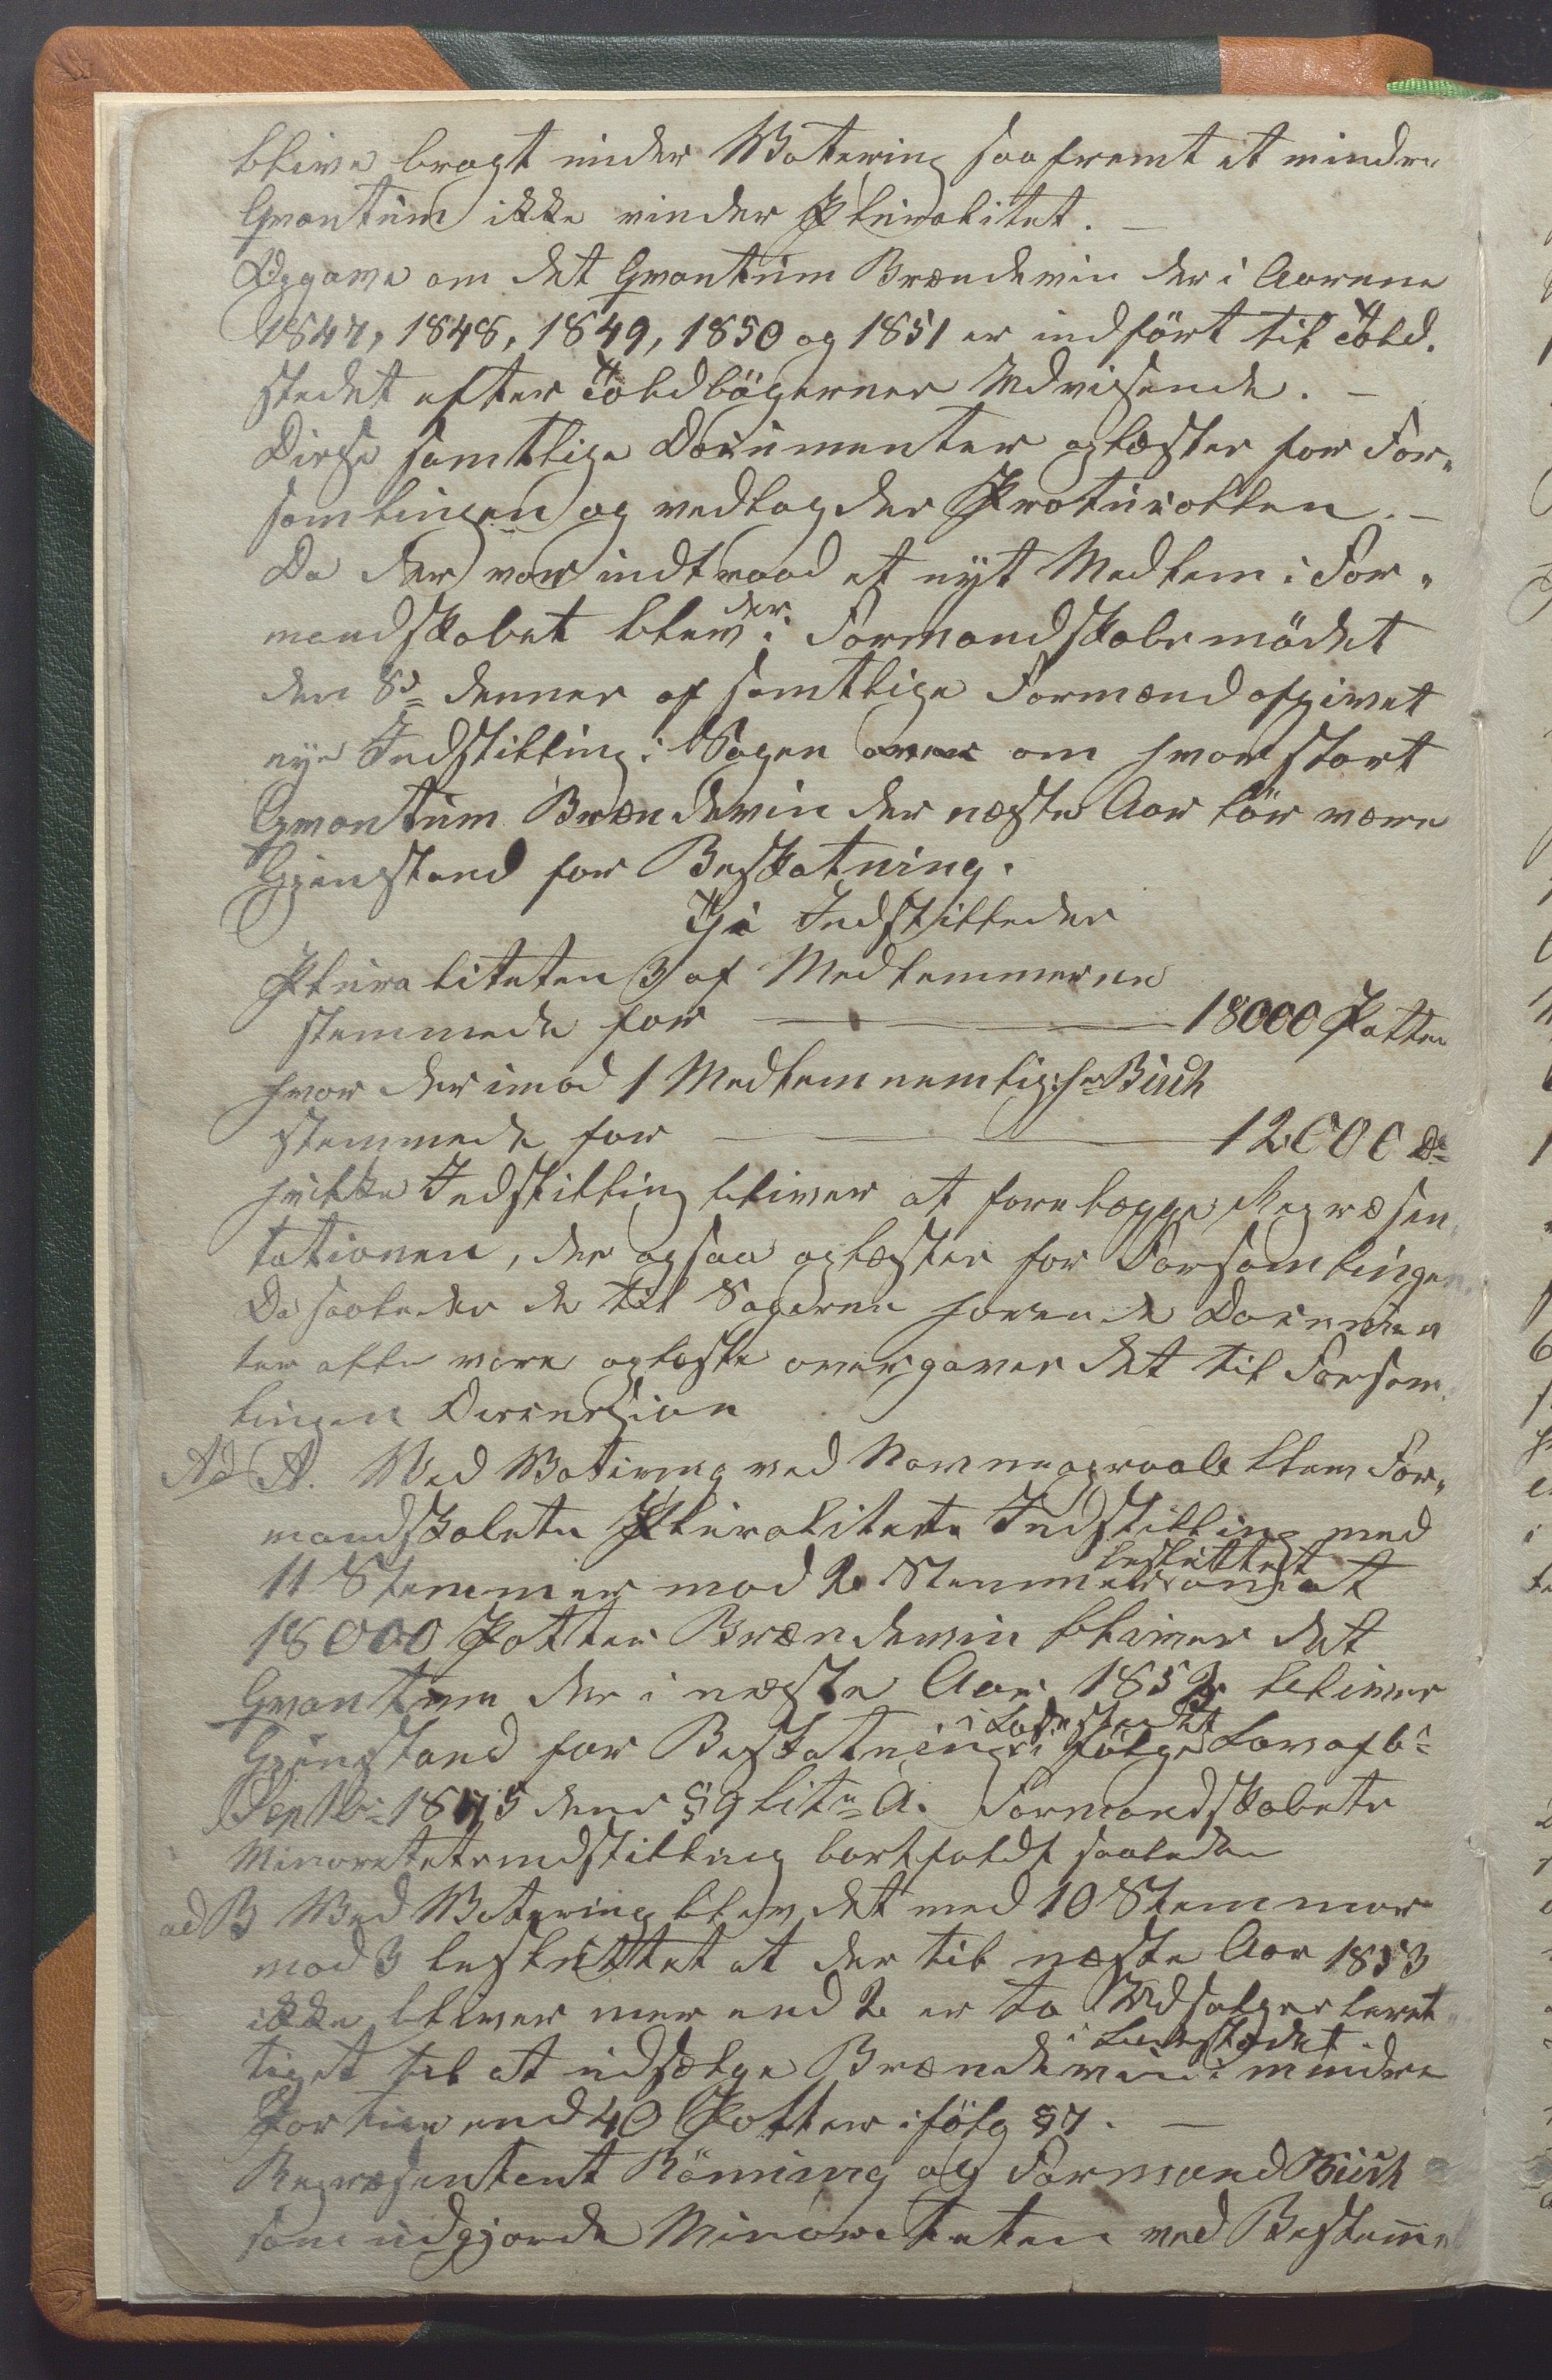 blive bragt under Votering saafremt et mindre
Qvantum ikke vinder Pluralitet. —
Opgave om det Qvantum Brændeviin der i Aarene
1847, 1848, 1849, 1850 og 1851 er indført til Told-
stedet efter Toldbøgernes Udvisende. —
Disse samtlige Documenter oplæstes for For-
samlingen og vedlagdes Protocollen. —
Da der var indtraad et nyt Medlem i For-
mandskabet blev der i Formandskabsmødet
den 8de dennes af samtlige Formænd afgivet
nye Indstilling i Sagen om hvor stort
Qvantum Brændeviin der næste Aar bør være
Gjenstand for Beskatning.
Indstilledes
Pluraliteten 3 af Medlemmerne
stemmede for — 18000 Potter
hvor derimod 1 Medlem nemlig: Hr Büch
stemmede for — 12000 Do
hvilke Indstilling bliver at forelægge Repræsen-
tationen, der ogsaa oplæstes for Forsamlingen.
Da saaledes de til Sagerne hørende Documen
ter alle vare oplæste overgaves det til Forsam-
lingen Discussion
Ad A. Ved Votering ved Navneopraab blev For-
mandskabets Pluralitets Indstilling med
11 Stemmer mod 2 Stemmer besluttet at
18000 Potter Brændeviin bliver det
Qvantum der i næste Aar 1853 bliver
Gjenstand for Beskatning i Ladestedet i følge Lov af 6te
Septbr 1845 dens § 9 Litr A. Formandskabets
Minoretetsindstilling bortfaldt saaledes
ad B Ved Votering blev det med 10 Stemmer
mod 3 besluttet at der til næste Aar 1853
ikke bliver mer end 2 er to Udsalger beret-
tiget til at udsælge Brændeviin i Ladestedet i mindre
Portier end 40 Potter ifølg § 7. —
Repræsentent Rönning og Formand Büch
som udgjorde Minoreteten ved Bestemmel